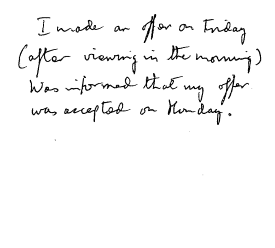 I made an offer on Friday
(after viewing in the morning)
Was informed that my offer
was accepted on Monday.